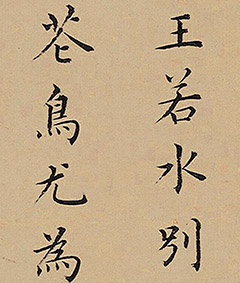 王若水別
花鳥尤為